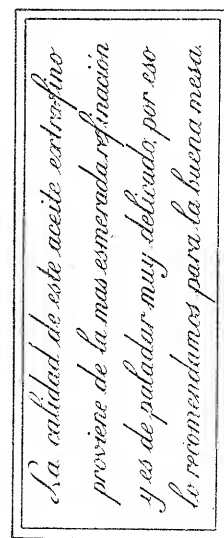 La calidad de este aceite extra-fino
proviene de la mas esmerada refinación
y es de paladar muy delicado, por eso
lo recomendamos para la buena mesa.